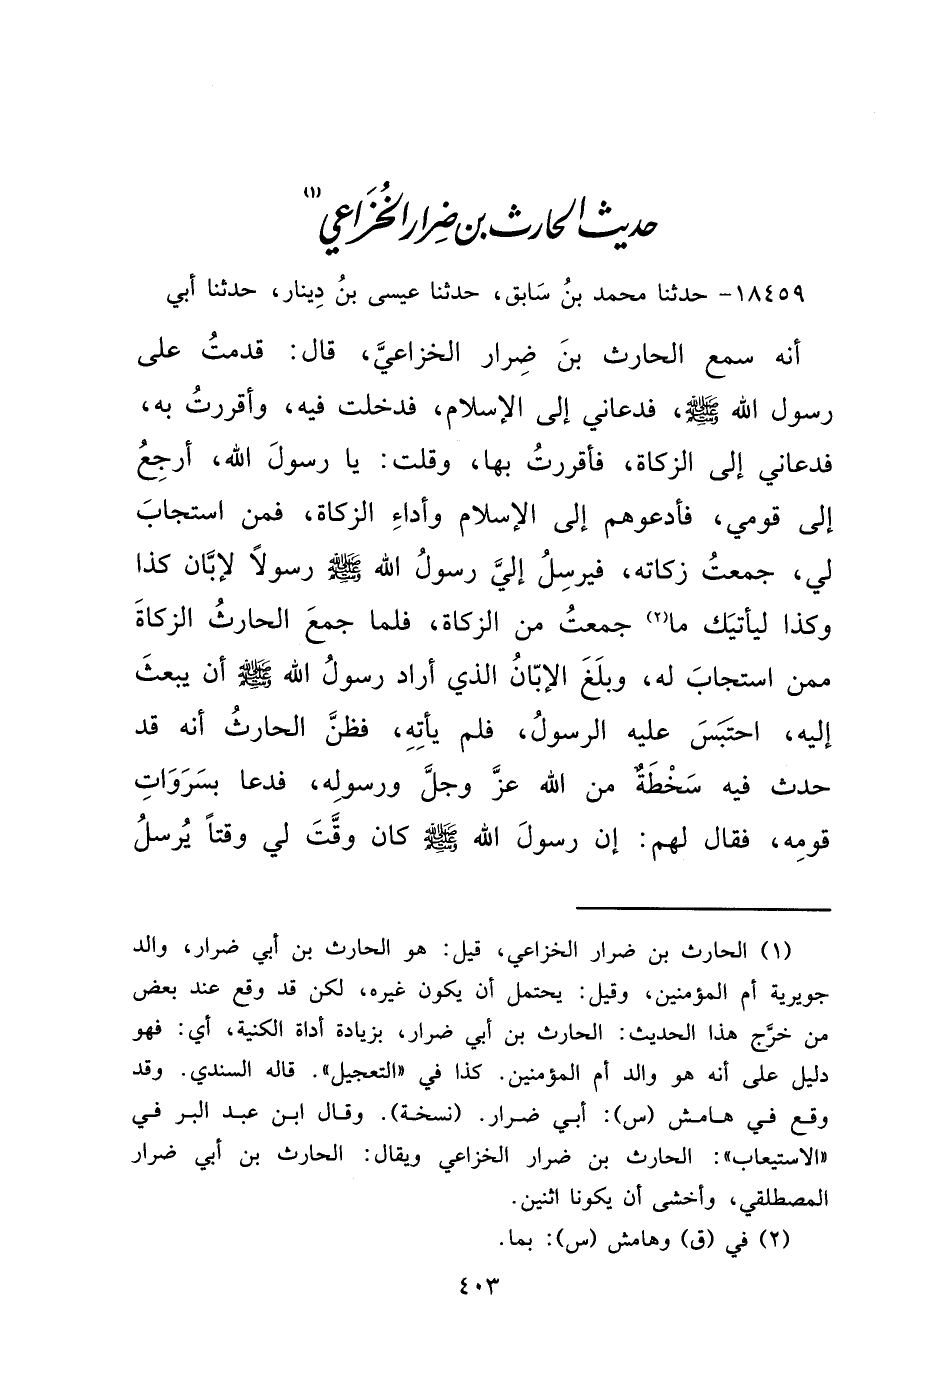 حديث الحارث بن ضِرار الخُزَاعي(١)
١٨٤٥٩- حدثنا محمد بنُ سَابق، حدثنا عيسى بنُ دِينار، حدثنا أبي
أنه سمع الحارث بنَ ضِرار الخزاعيَّ، قال: قدمتُ على
رسول الله ﷺ، فدعاني إلى الإسلام، فدخلت فيه، وأقررتُ به،
فدعاني إلى الزكاة، فأقررتُ بها، وقلت: يا رسولَ الله، أرجِعُ
إلى قومي، فأدعوهم إلى الإسلام وأداءِ الزكاة، فمن استجابَ
لي، جمعتُ زكاته، فيرسِلُ إليَّ رسولُ الله ﷺ رسولاً لإبَّان كذا
وكذا ليأتيَك ما(٢) جمعتُ من الزكاة، فلما جمعَ الحارثُ الزكاةَ
ممن استجابَ له، وبلَغَ الإبّانُ الذي أراد رسولُ الله ﷺ أن يبعثَ
إليه، احتبَسَ عليه الرسولُ، فلم يأتِهِ، فظنَّ الحارثُ أنه قد
حدث فيه سَخْطَةٌ من الله عزَّ وجلَّ ورسولِه، فدعا بسَرَوَاتِ
قومِه، فقال لهم: إن رسولَ الله ﷺ كان وقَّتَ لي وقتاً يُرسلُ
(١) الحارث بن ضرار الخزاعي، قيل: هو الحارث بن أبي ضرار، والد
جويرية أم المؤمنين، وقيل: يحتمل أن يكون غيره، لكن قد وقع عند بعض
من خرَّج هذا الحديث: الحارث بن أبي ضرار، بزيادة أداة الكنية، أي: فهو
دليل على أنه هو والد أم المؤمنين. كذا في «التعجيل». قاله السندي. وقد
وقع في هامش (س): أبي ضرار. (نسخة). وقال ابن عبد البر في
«الاستيعاب»: الحارث بن ضرار الخزاعي ويقال: الحارث بن أبي ضرار
المصطلقي، وأخشى أن يكونا اثنين.
(٢) في (ق) وهامش (س): بما.
٤٠٣